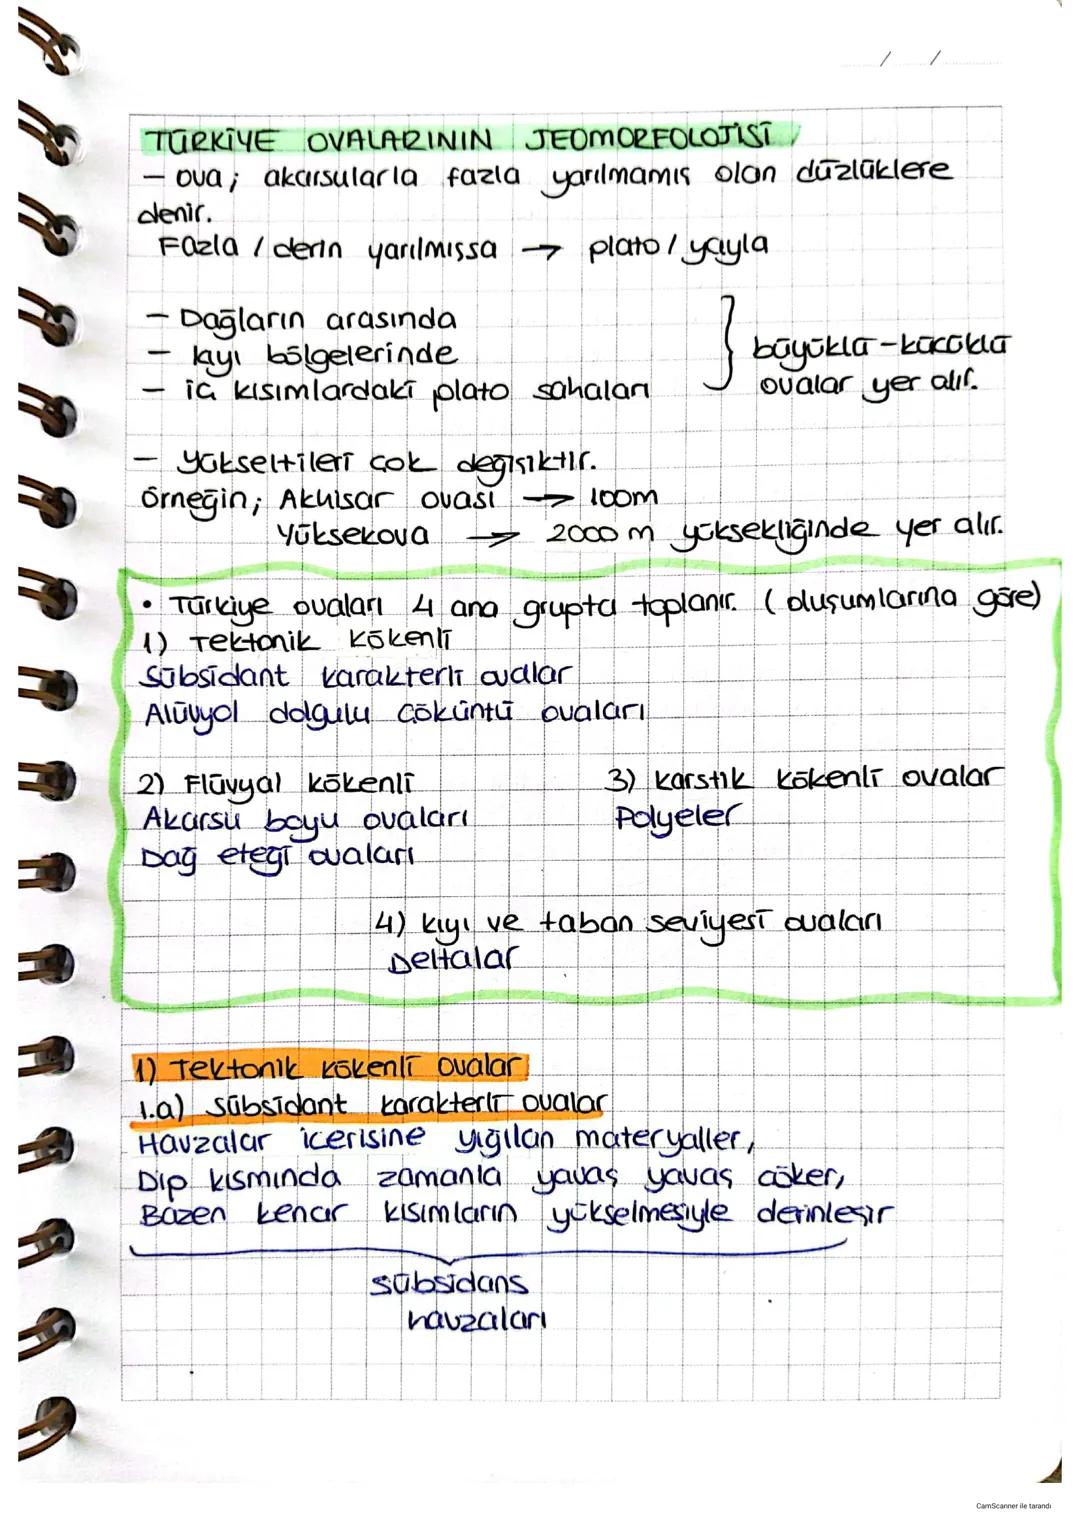 / /
TÜRKİYE OVALARININ JEOMORFOLOJİSİ
— ova; akarsularla fazla yarılmamış olan düzlüklere
denir.
Fazla / derin yarılmışsa → plato / yayla
— Dağların arasında
— kıyı bölgelerinde
— iç kısımlardaki plato sahaları
büyüklü - küçüklü
ovalar yer alır.
— Yükseltileri çok değişiktir.
Örneğin; Akhisar ovası → 100m
Yüksekova → 2000 m yüksekliğinde yer alır.
• Türkiye ovaları 4 ana grupta toplanır. (oluşumlarına göre)
1) Tektonik kökenli
Sübsidant karakterli ovalar
Alüvyol dolgulu çöküntü ovaları
2) Flüvyal kökenli
Akarsu boyu ovaları
Dağ eteği ovaları
3) karstik kökenli ovalar
Polyeler
4) kıyı ve taban seviyesi ovaları
Deltalar
1) Tektonik kökenli ovalar
1.a) Sübsidant karakterli ovalar
Havzalar içerisine yığılan materyaller,
Dip kısmında zamanla yavaş yavaş çöker,
Bazen kenar kısımların yükselmesiyle derinleşir
sübsidans
havzaları
CamScanner ile tarandı